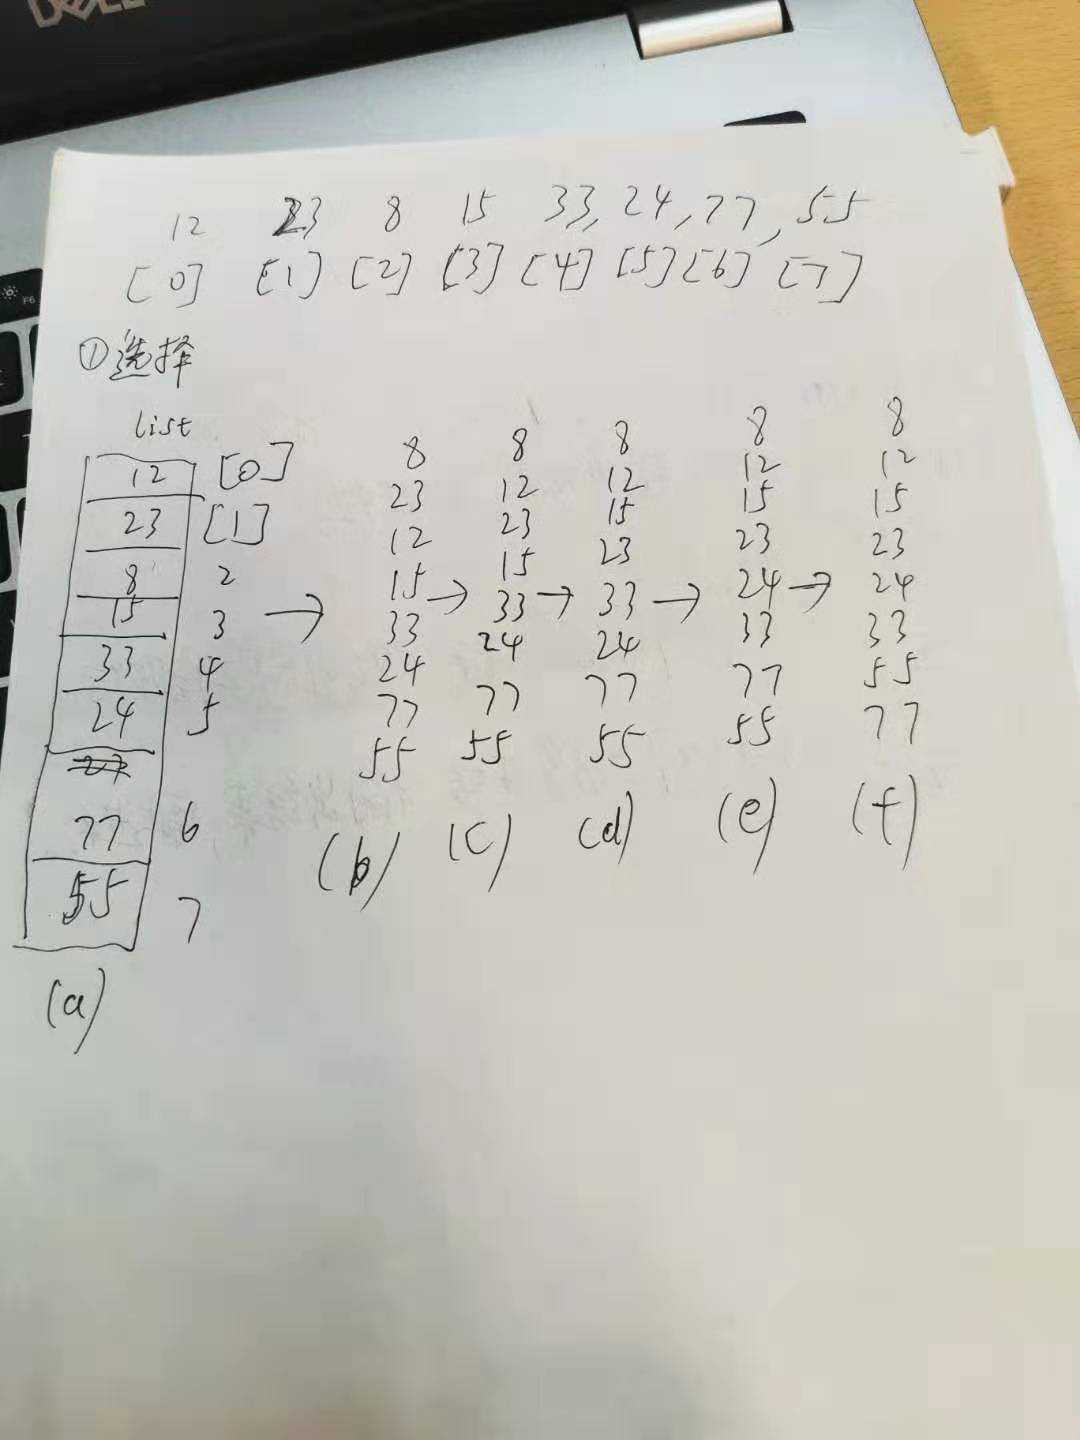 DELL
F6
12 23 8 15 33, 24, 77, 55
[0] [1] [2] [3] [4] [5] [6] [7]
①选择
list
12 [0]
23 [1]
8 2
15 3
33 4
24 5
77 6
55 7
(a)
→
8
23
12
15
33
24
77
55
(b)
→
8
12
23
15
33
24
77
55
(c)
→
8
12
15
23
33
24
77
55
(d)
→
8
12
15
23
24
33
77
55
(e)
→
8
12
15
23
24
33
55
77
(f)